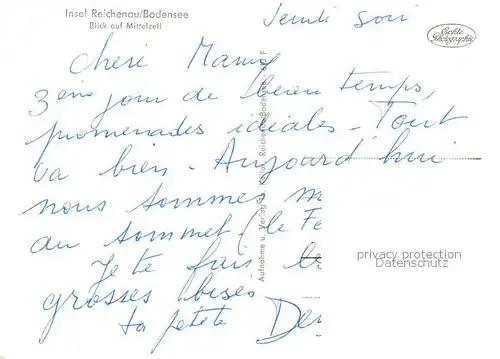 Insel Reichenau/Bodensee
Blick auf Mittelzell
Echte
Photographie
Jeudi soir
Cheri Mamy
3eme jour de beau temps,
promenades idéales - Tout
va bien - Aujourd'hui
nous sommes
au sommet (le
Je te fais
grosses bises
ta petite
Aufnahme u. Verlag Reichenau-Bodensee
privacy protection
Datenschutz